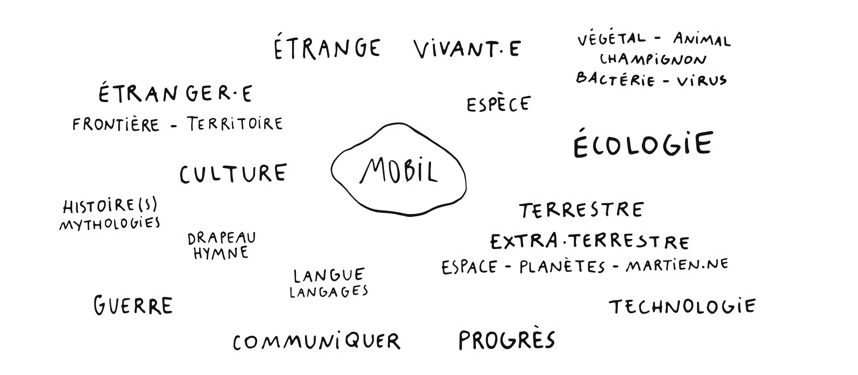 ÉTRANGE VIVANT·E
VÉGÉTAL - ANIMAL
CHAMPIGNON
BACTÉRIE - VIRUS
ÉTRANGER·E
ESPÈCE
FRONTIÈRE - TERRITOIRE
ÉCOLOGIE
CULTURE
MOBIL
HISTOIRE(S)
MYTHOLOGIES
TERRESTRE
DRAPEAU
HYMNE
EXTRA·TERRESTRE
ESPACE - PLANÈTES - MARTIEN.NE
LANGUE
LANGAGES
GUERRE
TECHNOLOGIE
COMMUNIQUER
PROGRÈS